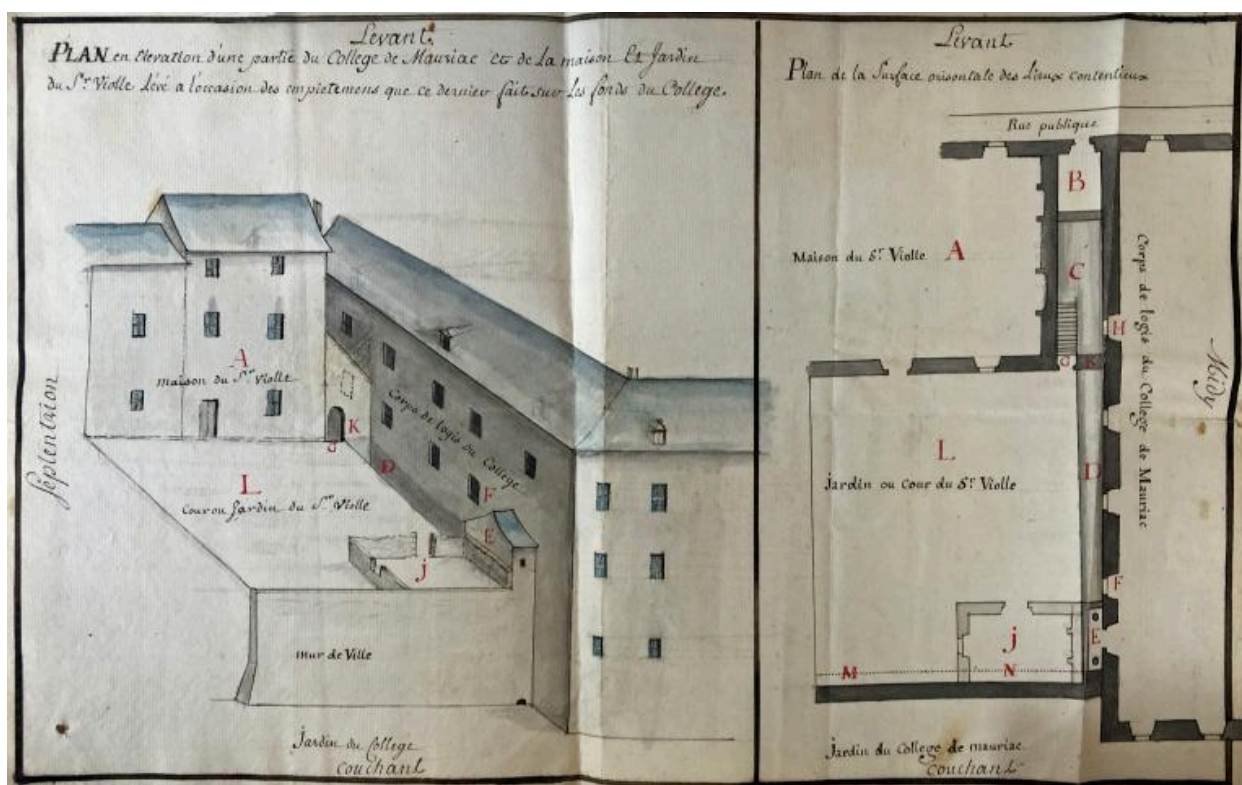 Levant.
PLAN en Elevation d'une partie du College de Mauriac et de la maison Et Jardin
du Sr Violle Lévé a l'occasion des empietemens que ce dernier fait sur les fonds du College.
A
maison du Sr Violle
Corps de logis du College
K
G
D
Séptentrion
L
Cour ou Jardin du Sr Violle
F
E
j
mur de Ville
Jardin du College
Couchant
Levant
Plan de la Surface orisontale des Lieux contentieux
Rue publique
B
Maison du Sr Violle A
C
Corps de logis du College de Mauriac
H
G K
Midy
L
Jardin ou Cour du Sr Violle
D
F
j
E
M N
Jardin du College de mauriac
Couchant